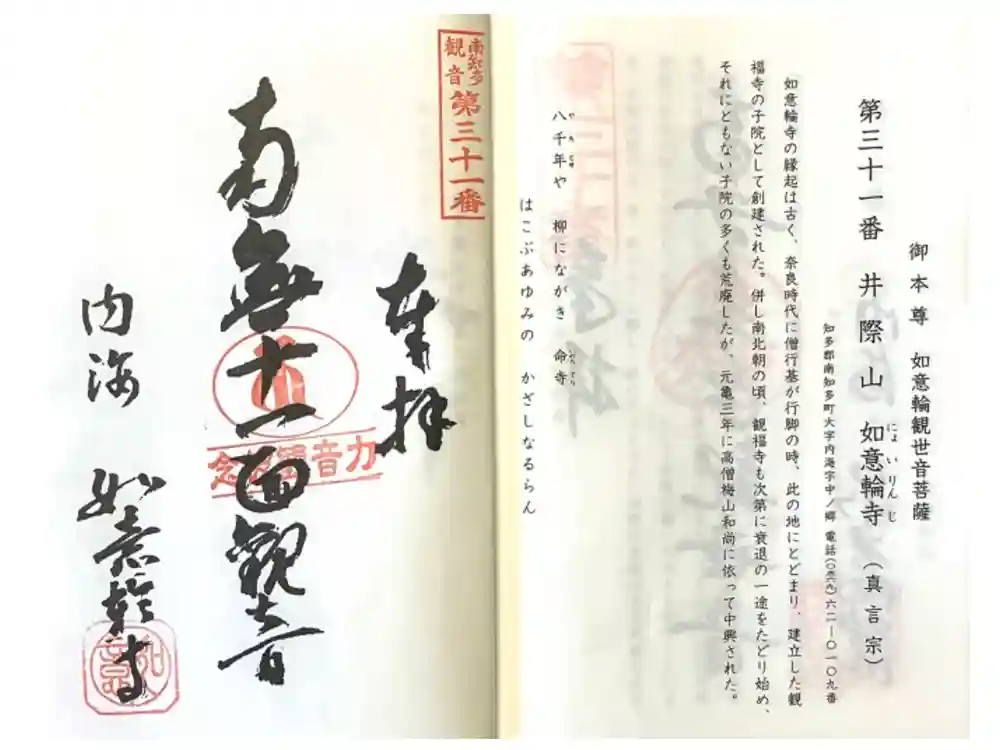 御本尊 如意輪観世音菩薩
第三十一番 井際山 如意輪寺(真言宗)
にょいりんじ
知多郡南知多町大字内海字中ノ郷 電話(〇五六九)六二―〇一〇九番
如意輪寺の縁起は古く、奈良時代に僧行基が行脚の時、此の地にとどまり、建立した観
福寺の子院として創建された。併し南北朝の頃、観福寺も次第に衰退の一途をたどり始め、
それにともない子院の多くも荒廃したが、元亀三年に高僧梅山和尚に依って中興された。
八千年や 柳にながき 命寺
はこぶあゆみの かざしなるらん
南知多
観音
第三十一番
奉拝
南無十一面観音
力音観彼念
内海 如意輪寺